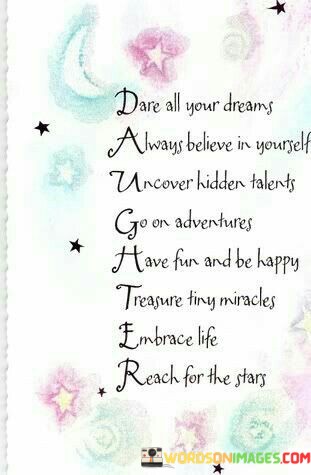 Dare all your dreams
Always believe in yourself
Uncover hidden talents
Go on adventures
Have fun and be happy
Treasure tiny miracles
Embrace life
Reach for the stars
WORDSONIMAGES.COM